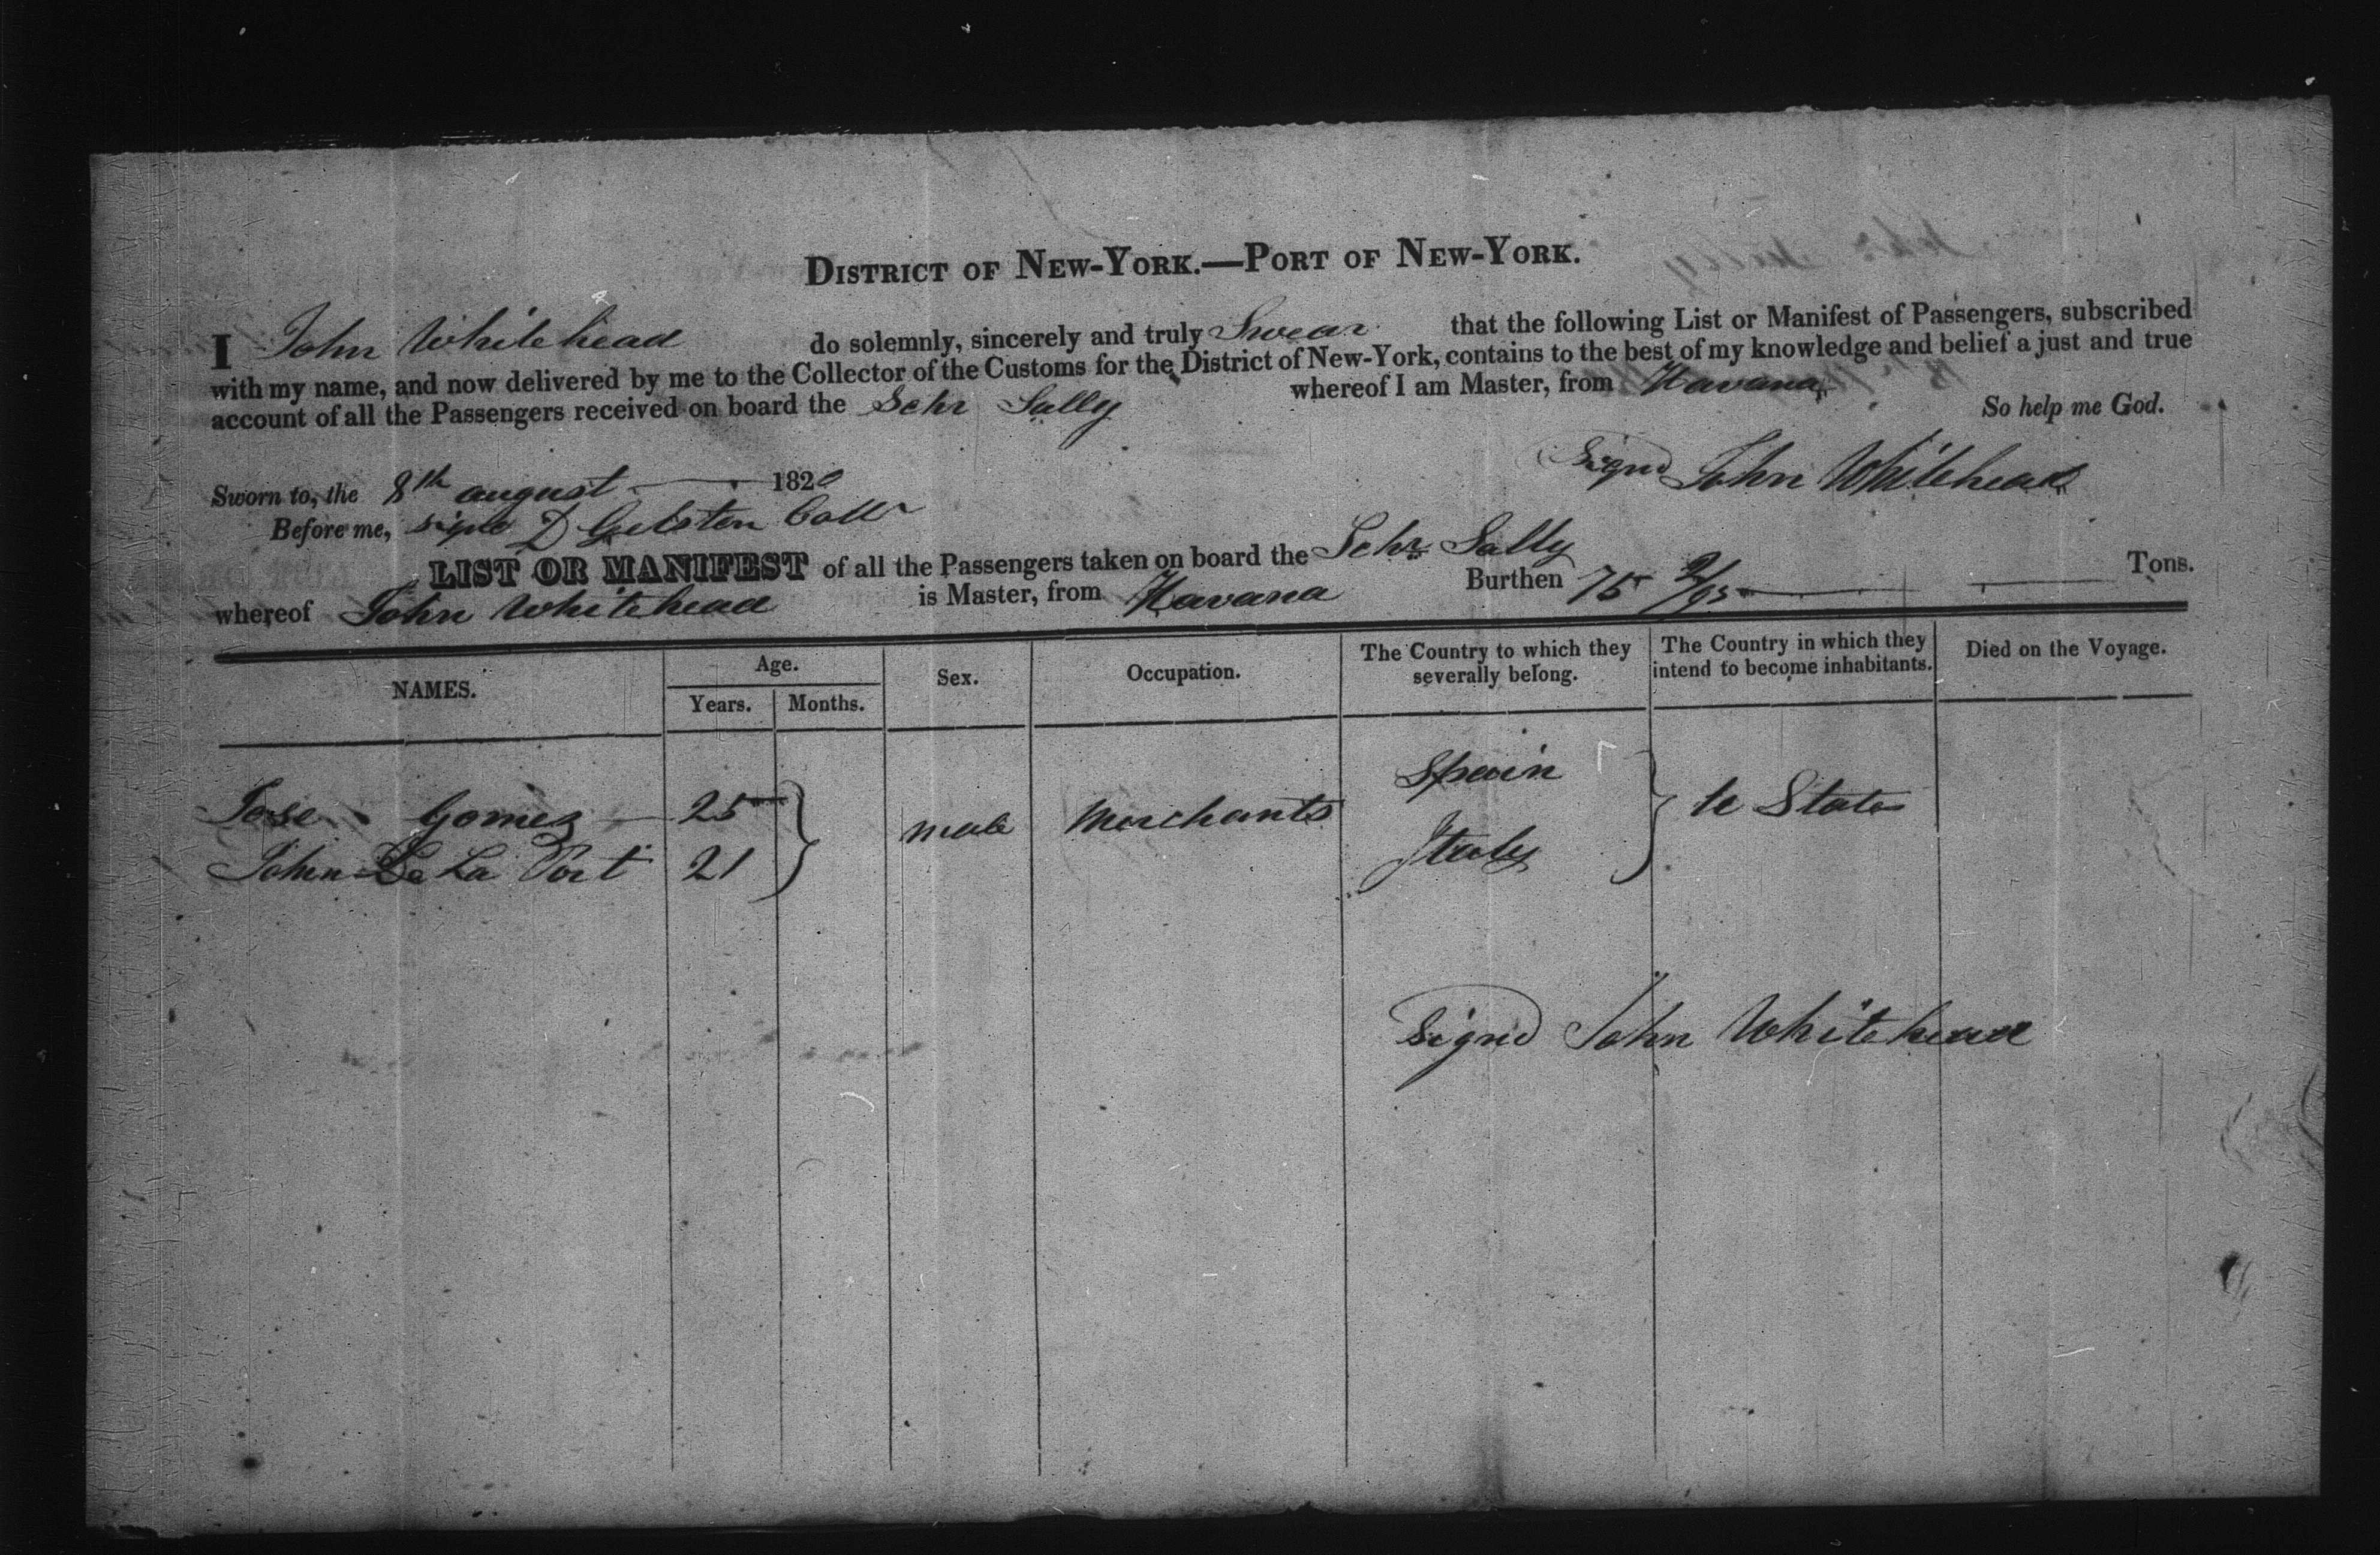 DISTRICT OF NEW-YORK.—PORT OF NEW-YORK.
I John Whitehead do solemnly, sincerely and truly Swear that the following List or Manifest of Passengers, subscribed
with my name, and now delivered by me to the Collector of the Customs for the District of New-York, contains to the best of my knowledge and belief a just and true
account of all the Passengers received on board the Schr Sally whereof I am Master, from Havana
So help me God.
Signd John Whitehead
Sworn to, the 8th august 1820
Before me, D Gelston Collr
LIST OR MANIFEST of all the Passengers taken on board the Schr Sally
whereof John Whitehead is Master, from Havana Burthen 75 2/95 Tons.
NAMES. Age. Years. Months. Sex. Occupation. The Country to which they severally belong. The Country in which they intend to become inhabitants. Died on the Voyage.
Jose Gomez 25 male Merchants Spain States
John De La Port 21 Italy
Signd John Whitehead